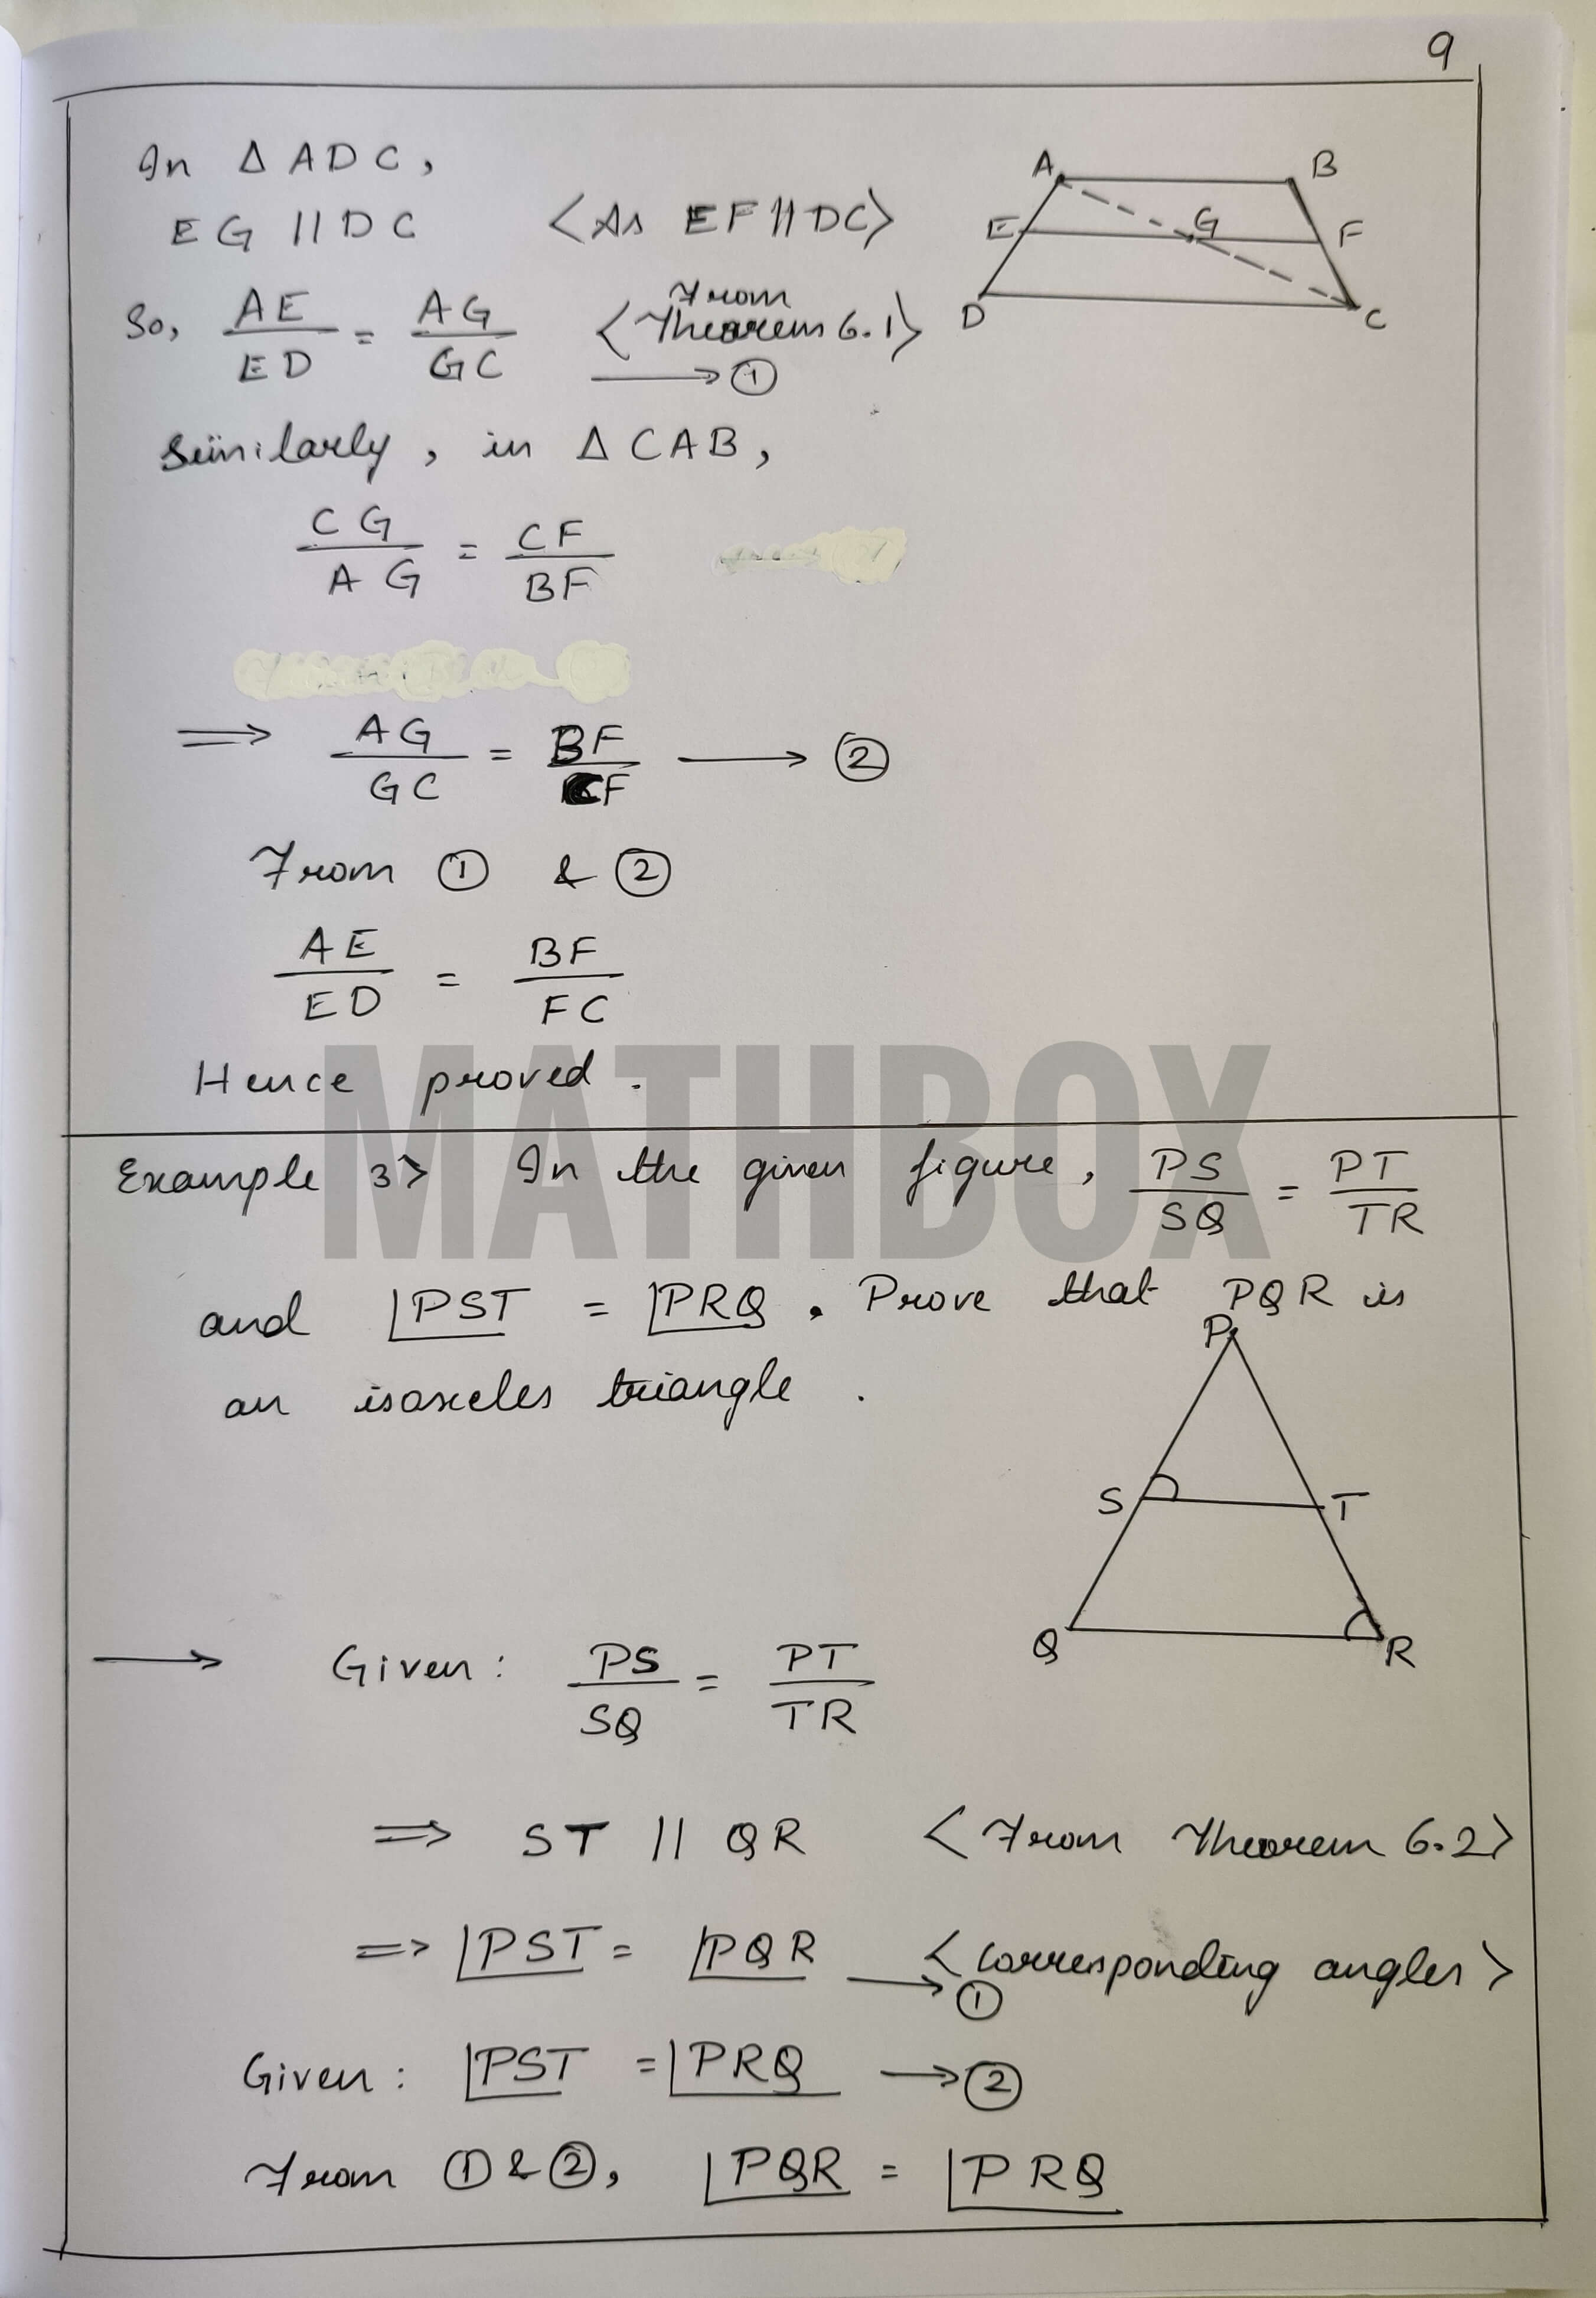 9
In Δ ADC,
EG || DC <As EF || DC>
So, AE/ED = AG/GC <From Theorem 6.1> ⟶ ①
Similarly, in Δ CAB,
CG/AG = CF/BF
⟹ AG/GC = BF/CF ⟶ ②
From ① & ②
AE/ED = BF/FC
Hence proved.
A B
E G F
D C
MATHBOX
Example 3> In the given figure, PS/SQ = PT/TR
and ∠PST = ∠PRQ. Prove that PQR is
an isosceles triangle.
P
S T
Q R
⟶ Given: PS/SQ = PT/TR
⟹ ST || QR <From Theorem 6.2>
⟹ ∠PST = ∠PQR ⟶ ① <Corresponding angles>
Given: ∠PST = ∠PRQ ⟶ ②
From ① & ②, ∠PQR = ∠PRQ